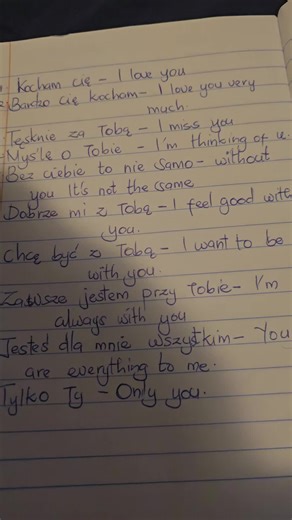 Kocham cię – I love you
2 Bardzo cię kocham – I love you very
much.
Tęsknie za Tobą – I miss you
Myślę o Tobie – I'm thinking of u.
Bez ciebie to nie samo – without
you It's not the same
Dobrze mi z Tobą – I feel good with
you.
Chcę być z Tobą – I want to be
with you.
Zawsze jestem przy Tobie – I'm
always with you
Jesteś dla mnie wszystkim – You
are everything to me.
Tylko Ty – Only you.